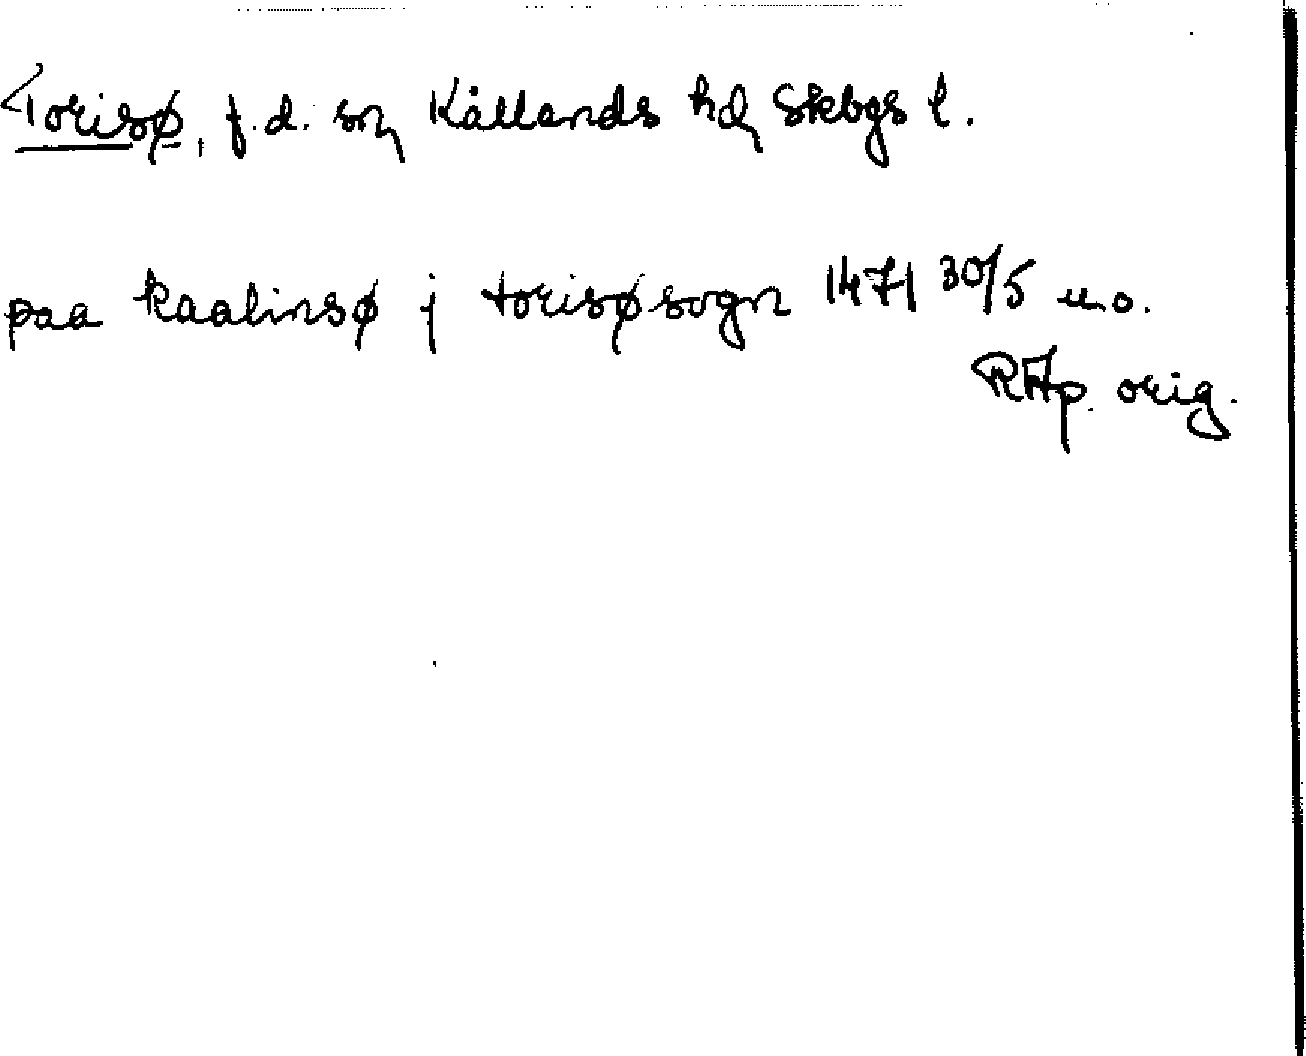 Torisø, f.d. sn Kållands hd Skbgs l.
paa kaalinsø j torisø sogn 1471 30/5 u.o.
RAp. orig.